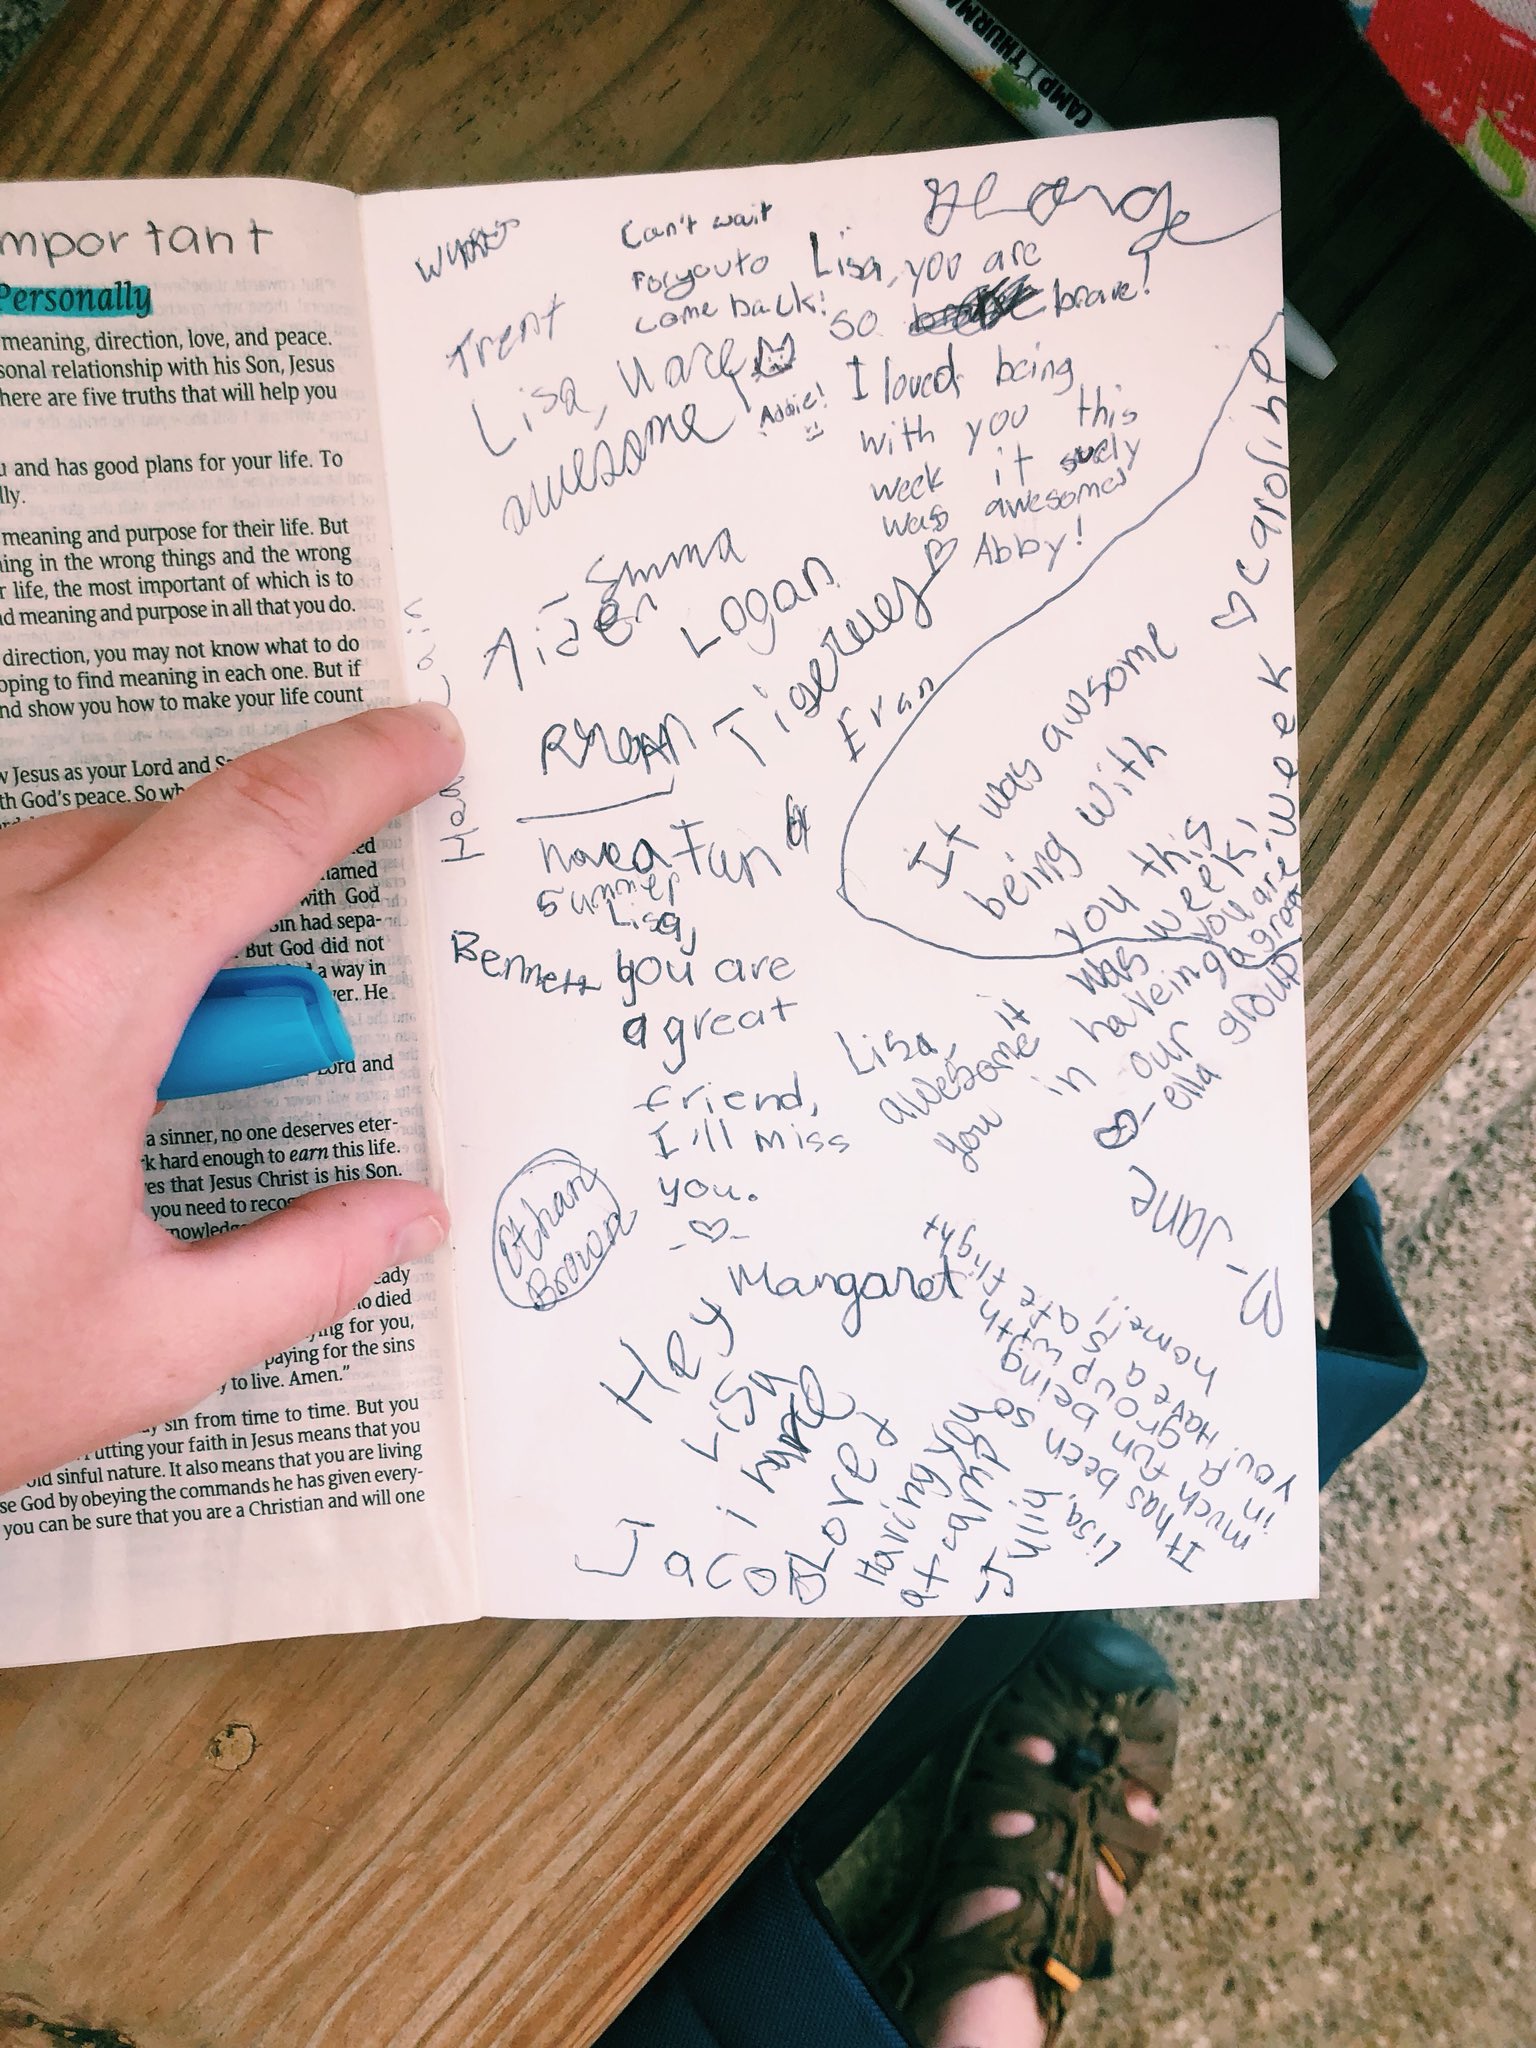 mportant
Personally
meaning, direction, love, and peace.
sonal relationship with his Son, Jesus
here are five truths that will help you
u and has good plans for your life. To
lly.
meaning and purpose for their life. But
ning in the wrong things and the wrong
r life, the most important of which is to
nd meaning and purpose in all that you do.
direction, you may not know what to do
oping to find meaning in each one. But if
nd show you how to make your life count
w Jesus as your Lord and
th God's peace. So
named
with God
sin had sepa-
But God did not
a way in
ver. He
Lord and
a sinner, no one deserves eter-
rk hard enough to earn this life.
es that Jesus Christ is his Son.
you need to
eady
o died
ying for you,
paying for the sins
y to live. Amen."
sin from time to time. But you
utting your faith in Jesus means that you
old sinful nature. It also means that you are living
se God by obeying the commands he has given every-
you can be sure that you are a Christian and will one
CAMP THURMA
George
Can't wait
For you to
come back!
Addie!
Trent
Lisa, U are
awesome!
- Emma
Lisa, you are
so brave!
I loved being
with you this
week it surly
was awesome
Abby!
Aiden
Logan
Rhean
Tigerues
Eran
have a fun
summer
Bennett
Lisa,
you are
a great
friend,
I'll miss
you.
Margaret
Ethan
Brown
It was awsome
being with
you this
week
caroline
Lisa,
awesome it was
you in haveing
our group
you are a great
week!
- ella
- Jane
Hey
Lisa
i have
Loved
Having you
at camp
- Julia
Jacob
Lisa,
It has been so
much fun being
in group with
you. Have a
safe flight
home!!